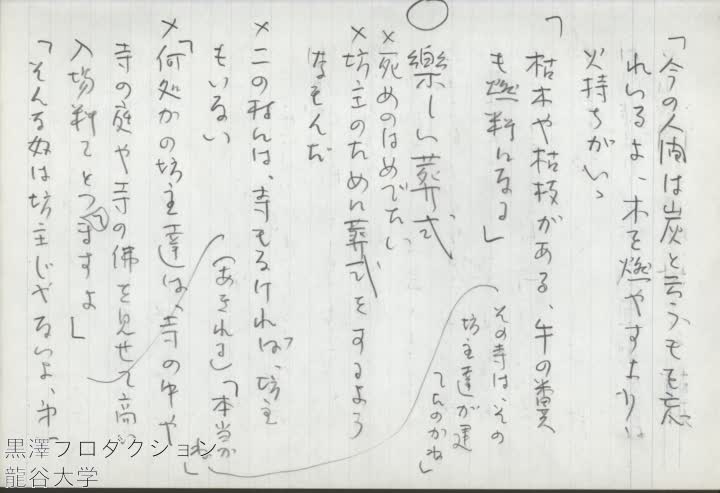 「今の人間は炭と云うものを忘
れいるよ、木を燃やすより
火持ちがいゝ
「枯木や枯枝がある、牛の糞
も燃料になる」
楽しい葬式
×死ぬのはめでたい
×坊主のために葬式をするよう
なもんだ
×この村んは、寺もなければ、坊主
もいない
(あきれる)「本当か
ね」
×「何処かの坊主達は、寺の中や
寺の庭や寺の佛を見せて高い
入場料でとってますよ」
「そんな奴は坊主じゃないよ、
その寺は、その
坊主達が建
てたのかね」
黒澤プロダクション
龍谷大学